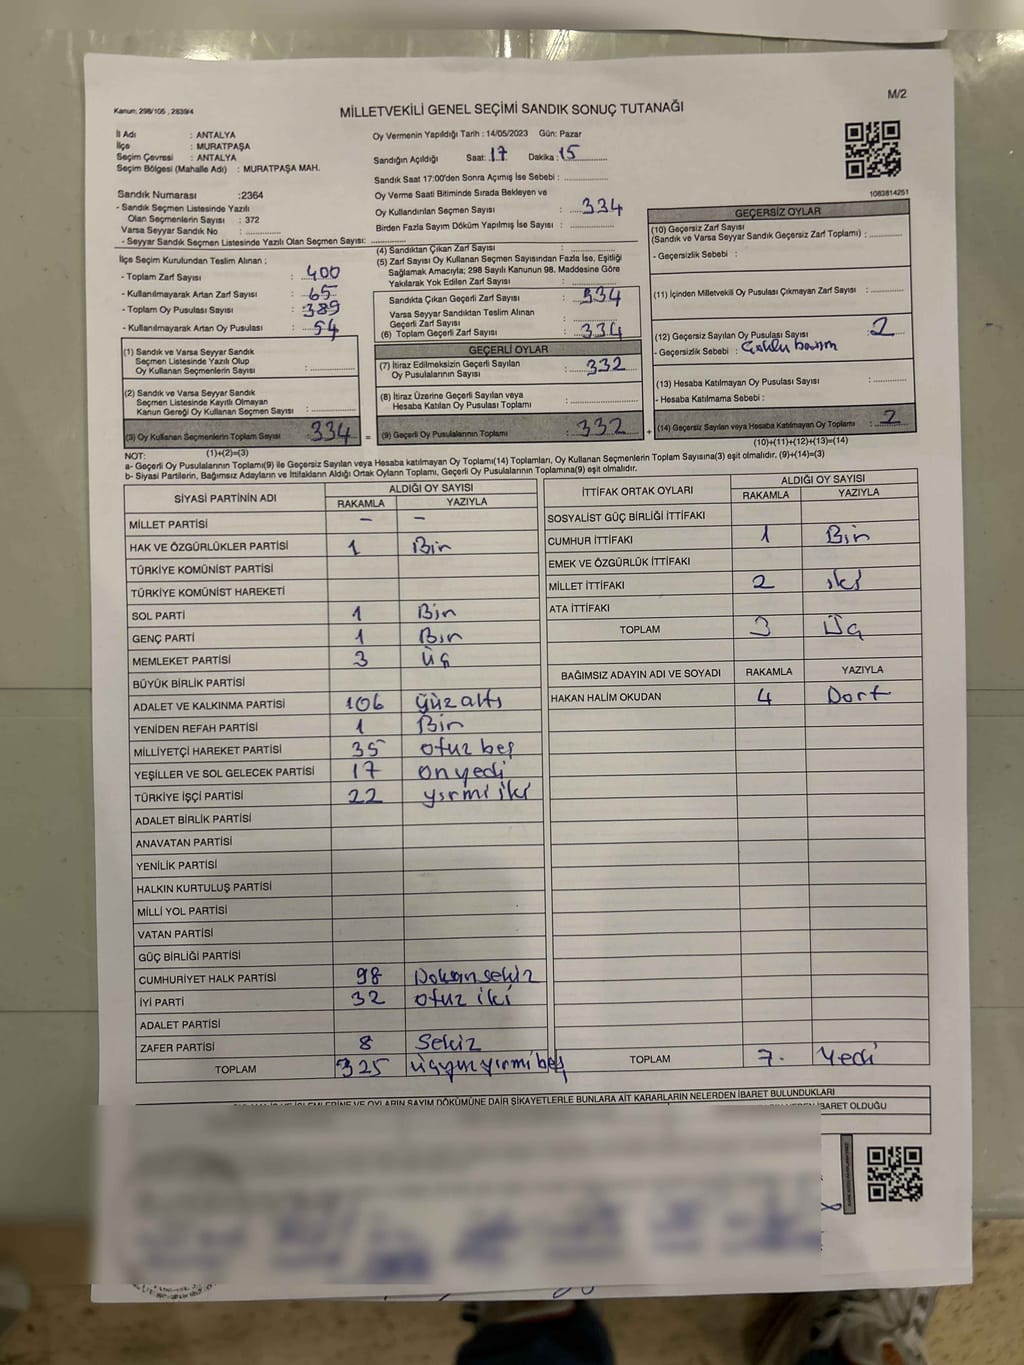 M/2
Kanun: 298/105 , 2839/4
MİLLETVEKİLİ GENEL SEÇİMİ SANDIK SONUÇ TUTANAĞI
İl Adı : ANTALYA
İlçe : MURATPAŞA
Seçim Çevresi : ANTALYA
Seçim Bölgesi (Mahalle Adı) : MURATPAŞA MAH.
Oy Vermenin Yapıldığı Tarih : 14/05/2023 Gün: Pazar
Sandığın Açıldığı Saat: 17 Dakika : 15
Sandık Saat 17:00'den Sonra Açımış İse Sebebi :
Oy Verme Saati Bitiminde Sırada Bekleyen ve
Oy Kullandırılan Seçmen Sayısı : 334
Birden Fazla Sayım Döküm Yapılmış İse Sayısı :
1083814251
Sandık Numarası :2364
- Sandık Seçmen Listesinde Yazılı
Olan Seçmenlerin Sayısı : 372
Varsa Seyyar Sandık No :
- Seyyar Sandık Seçmen Listesinde Yazılı Olan Seçmen Sayısı:
İlçe Seçim Kurulundan Teslim Alınan :
- Toplam Zarf Sayısı : 400
- Kullanılmayarak Artan Zarf Sayısı : 65
- Toplam Oy Pusulası Sayısı : 389
- Kullanılmayarak Artan Oy Pusulası : 54
(1) Sandık ve Varsa Seyyar Sandık
Seçmen Listesinde Yazılı Olup
Oy Kullanan Seçmenlerin Sayısı :
(2) Sandık ve Varsa Seyyar Sandık
Seçmen Listesinde Kayıtlı Olmayan
Kanun Gereği Oy Kullanan Seçmen Sayısı :
(3) Oy Kullanan Seçmenlerin Toplam Sayısı : 334 =
(1)+(2)=(3)
(4) Sandıktan Çıkan Zarf Sayısı :
(5) Zarf Sayısı Oy Kullanan Seçmen Sayısından Fazla İse, Eşitliği
Sağlamak Amacıyla; 298 Sayılı Kanunun 98. Maddesine Göre
Yakılarak Yok Edilen Zarf Sayısı :
Sandıkta Çıkan Geçerli Zarf Sayısı : 334
Varsa Seyyar Sandıktan Teslim Alınan
Geçerli Zarf Sayısı :
(6) Toplam Geçerli Zarf Sayısı : 334
GEÇERLİ OYLAR
(7) İtiraz Edilmeksizin Geçerli Sayılan
Oy Pusulalarının Sayısı : 332
(8) İtiraz Üzerine Geçerli Sayılan veya
Hesaba Katılan Oy Pusulası Toplamı :
(9) Geçerli Oy Pusulalarının Toplamı : 332 +
GEÇERSİZ OYLAR
(10) Geçersiz Zarf Sayısı
(Sandık ve Varsa Seyyar Sandık Geçersiz Zarf Toplamı) :
- Geçersizlik Sebebi :
(11) İçinden Milletvekili Oy Pusulası Çıkmayan Zarf Sayısı :
(12) Geçersiz Sayılan Oy Pusulası Sayısı : 2
- Geçersizlik Sebebi :
(13) Hesaba Katılmayan Oy Pusulası Sayısı :
- Hesaba Katılmama Sebebi :
(14) Geçersiz Sayılan veya Hesaba Katılmayan Oy Toplamı : 2
(10)+(11)+(12)+(13)=(14)
NOT:
a- Geçerli Oy Pusulalarının Toplamı(9) ile Geçersiz Sayılan veya Hesaba katılmayan Oy Toplamı(14) Toplamları, Oy Kullanan Seçmenlerin Toplam Sayısına(3) eşit olmalıdır. (9)+(14)=(3)
b- Siyasi Partilerin, Bağımsız Adayların ve İttifakların Aldığı Ortak Oyların Toplamı, Geçerli Oy Pusulalarının Toplamına(9) eşit olmalıdır.
SİYASİ PARTİNİN ADI ALDIĞI OY SAYISI
RAKAMLA YAZIYLA
MİLLET PARTİSİ – –
HAK VE ÖZGÜRLÜKLER PARTİSİ 1 Bir
TÜRKİYE KOMÜNİST PARTİSİ
TÜRKİYE KOMÜNİST HAREKETİ
SOL PARTİ 1 Bir
GENÇ PARTİ 1 Bir
MEMLEKET PARTİSİ 3 üç
BÜYÜK BİRLİK PARTİSİ
ADALET VE KALKINMA PARTİSİ 106 yüzaltı
YENİDEN REFAH PARTİSİ 1 Bir
MİLLİYETÇİ HAREKET PARTİSİ 35 otuz beş
YEŞİLLER VE SOL GELECEK PARTİSİ 17 onyedi
TÜRKİYE İŞÇİ PARTİSİ 22 yirmi iki
ADALET BİRLİK PARTİSİ
ANAVATAN PARTİSİ
YENİLİK PARTİSİ
HALKIN KURTULUŞ PARTİSİ
MİLLİ YOL PARTİSİ
VATAN PARTİSİ
GÜÇ BİRLİĞİ PARTİSİ
CUMHURİYET HALK PARTİSİ 98 Doksan sekiz
İYİ PARTİ 32 otuz iki
ADALET PARTİSİ
ZAFER PARTİSİ 8 Sekiz
TOPLAM 325 üçyüzyirmi beş
İTTİFAK ORTAK OYLARI ALDIĞI OY SAYISI
RAKAMLA YAZIYLA
SOSYALİST GÜÇ BİRLİĞİ İTTİFAKI
CUMHUR İTTİFAKI 1 Bir
EMEK VE ÖZGÜRLÜK İTTİFAKI
MİLLET İTTİFAKI 2 iki
ATA İTTİFAKI
TOPLAM 3 Üç
BAĞIMSIZ ADAYIN ADI VE SOYADI RAKAMLA YAZIYLA
HAKAN HALİM OKUDAN 4 Dört
TOPLAM 7. Yedi
OYLARIN SAYIM DÖKÜMÜNE DAİR ŞİKAYETLERLE BUNLARA AİT KARARLARIN NELERDEN İBARET BULUNDUKLARI
İBARET OLDUĞU